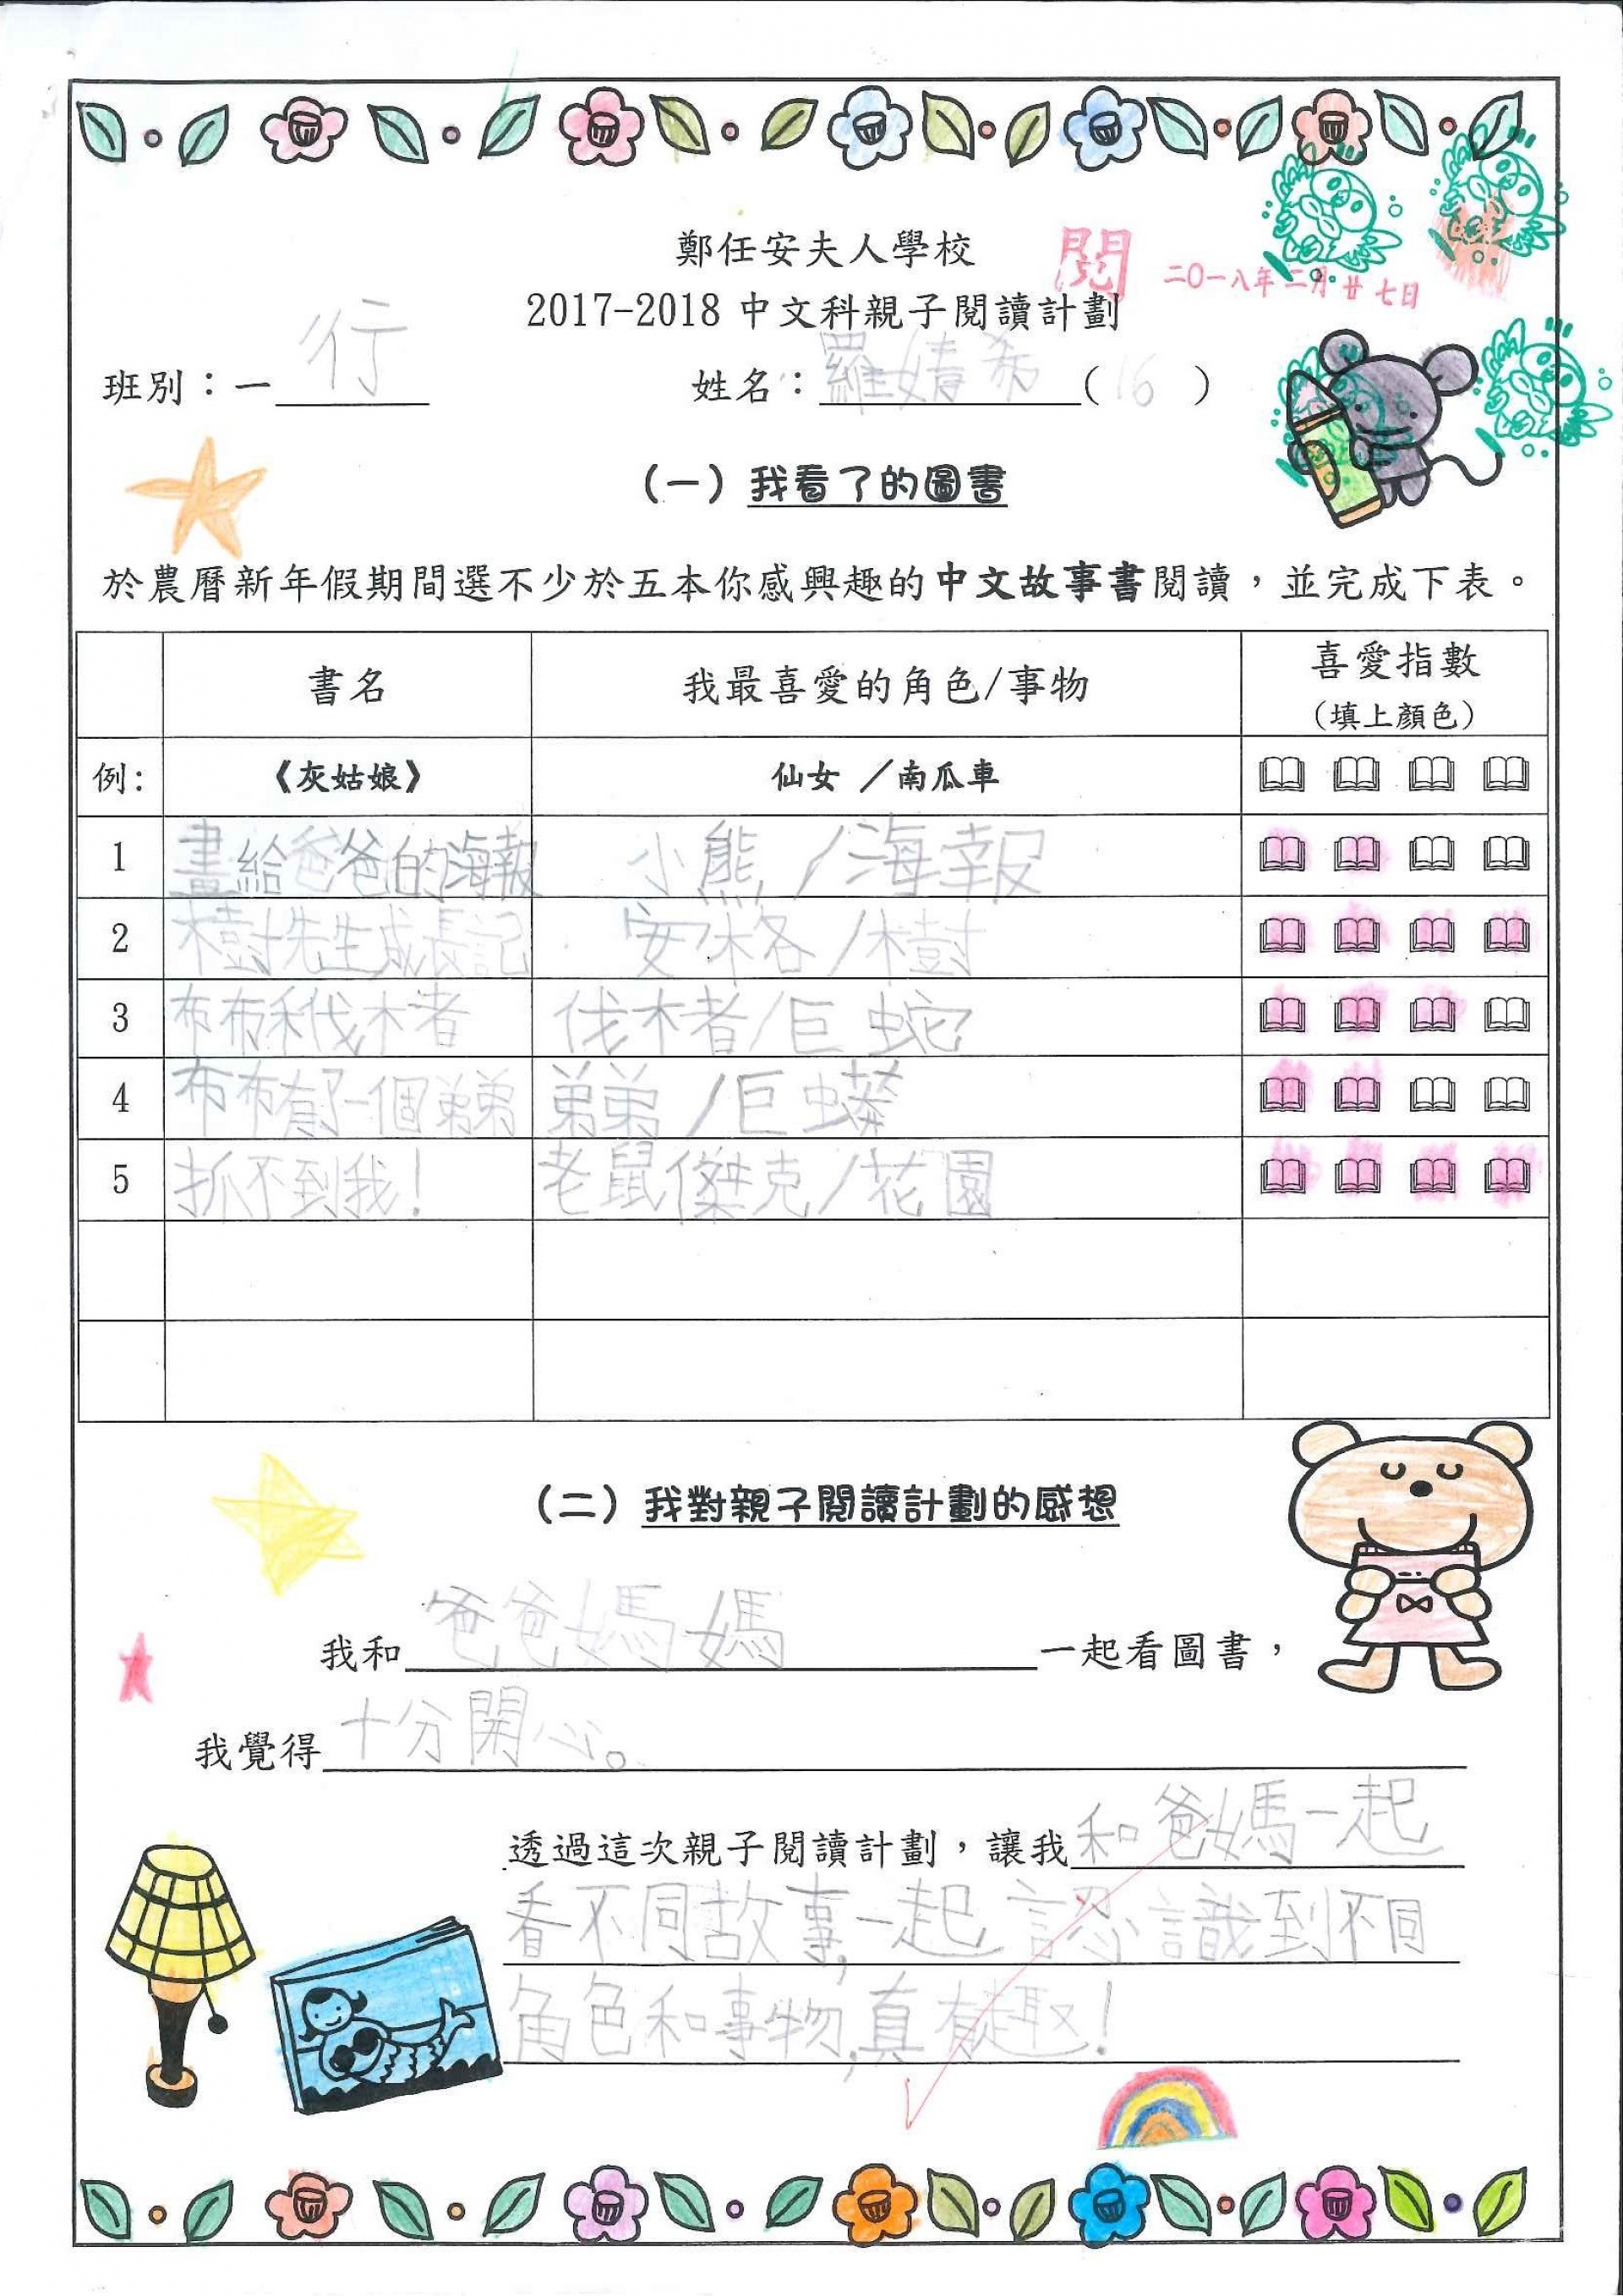 鄭任安夫人學校
閱
二〇一八年二月廿七日
2017-2018 中文科親子閱讀計劃
班別：一 行 姓名：羅婧希 ( 16 )
（一）我看了的圖書
於農曆新年假期間選不少於五本你感興趣的中文故事書閱讀，並完成下表。
書名 我最喜愛的角色/事物 喜愛指數
（填上顏色）
例： 《灰姑娘》 仙女 ／南瓜車
1 畫給爸爸的海報 小熊/海報
2 樹先生成長記 安格/樹
3 布布和伐木者 伐木者/巨蛇
4 布布有一個弟弟 弟弟/巨蟒
5 抓不到我！ 老鼠傑克/花園
（二）我對親子閱讀計劃的感想
我和爸爸媽媽一起看圖書，
我覺得十分開心。
透過這次親子閱讀計劃，讓我和爸媽一起
看不同故事,一起認識到不同
角色和事物,真有趣！